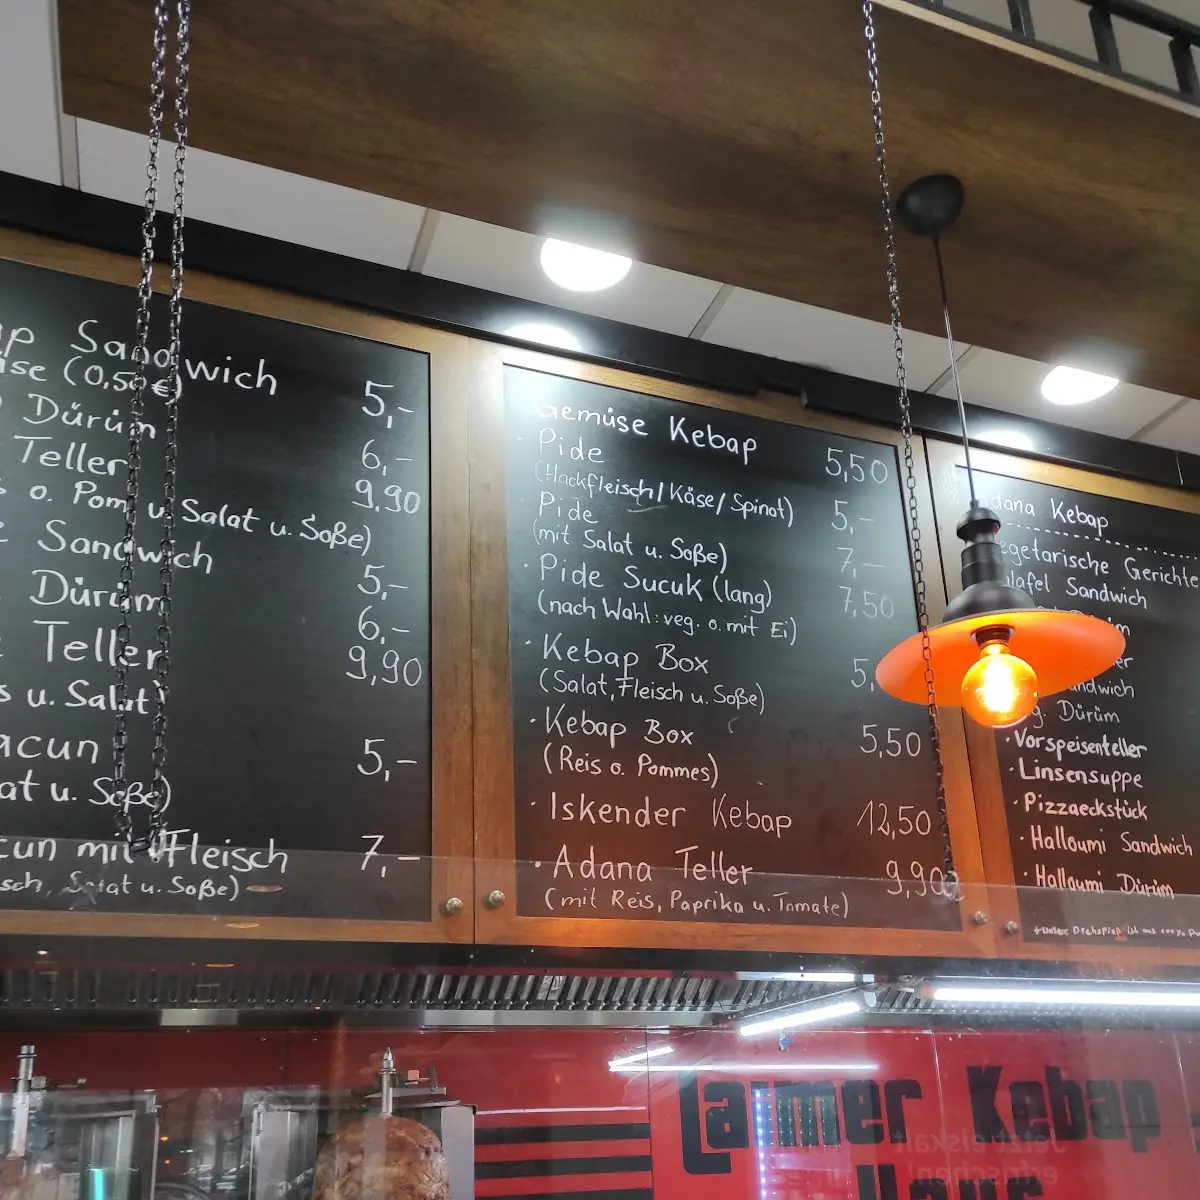 Sandwich 5,-
(0,50€)
Dürüm 6,-
Teller 9,90
o. Pom u. Salat u. Soße)
Sandwich 5,-
Dürüm 6,-
Teller 9,90
u. Salat)
acun 5,-
at u. Soße)
cun mit Fleisch 7,-
sch, Salat u. Soße)
Gemüse Kebap 5,50
· Pide 5,-
(Hackfleisch/Käse/Spinat)
· Pide 7,-
(mit Salat u. Soße)
· Pide Sucuk (lang) 7,50
(nach Wahl: veg. o. mit Ei)
· Kebap Box 5,
(Salat, Fleisch u. Soße)
· Kebap Box 5,50
(Reis o. Pommes)
· Iskender Kebap 12,50
· Adana Teller 9,90
(mit Reis, Paprika u. Tomate)
Adana Kebap
egetarische Gerichte
lafel Sandwich
andwich
g. Dürüm
· Vorspeisenteller
· Linsensuppe
· Pizzaeckstück
· Halloumi Sandwich
· Halloumi Dürüm
Laimer Kebap
Haus
Jetzt eiskalt
erfrischen!